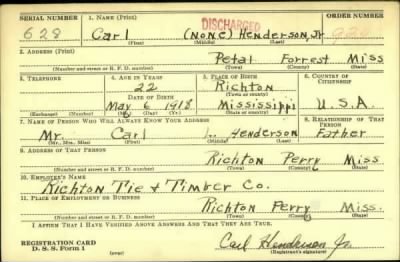 SERIAL NUMBER 1. NAME (Print) ORDER NUMBER
DISCHARGED
628 Carl (None) Henderson, Jr
(First) (Middle) (Last)
2. ADDRESS (Print)
Petal Forrest Miss
(Number and street or R. F. D. number) (Town) (County) (State)
3. TELEPHONE 4. AGE IN YEARS 5. PLACE OF BIRTH 6. COUNTRY OF CITIZENSHIP
22 Richton
DATE OF BIRTH (Town or county)
May 6 1918 Mississippi U.S.A.
(Exchange) (Number) (Mo.) (Day) (Yr.) (State or country)
7. NAME OF PERSON WHO WILL ALWAYS KNOW YOUR ADDRESS 8. RELATIONSHIP OF THAT PERSON
Mr. Carl L. Henderson Father
(Mr., Mrs., Miss) (First) (Middle) (Last)
9. ADDRESS OF THAT PERSON
Richton Perry Miss
(Number and street or R. F. D. number) (Town) (County) (State)
10. EMPLOYER'S NAME
Richton Tie & Timber Co.
11. PLACE OF EMPLOYMENT OR BUSINESS
Richton Perry Miss.
(Number and street or R. F. D. number) (Town) (County) (State)
I AFFIRM THAT I HAVE VERIFIED ABOVE ANSWERS AND THAT THEY ARE TRUE.
REGISTRATION CARD
D. S. S. Form 1 (over) Carl Henderson Jr.
(Registrant's signature)